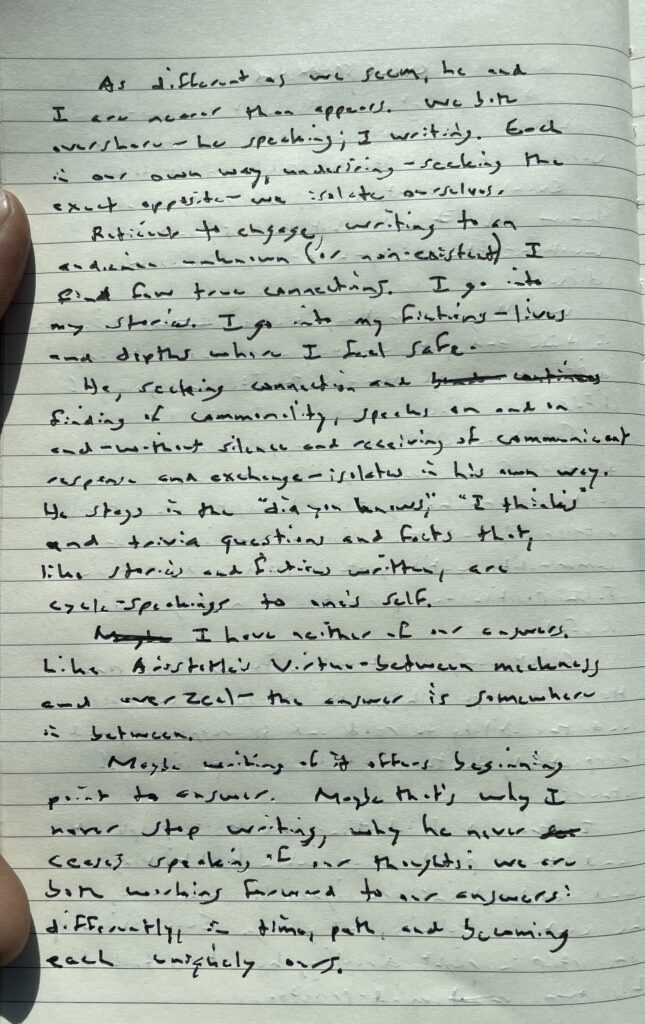 As different as we seem, he and
I are nearer than appears. We both
overshare - he speaking; I writing. Each
in our own way, undesiring - seeking the
exact opposite - we isolate ourselves.
Reticent to engage, writing to an
audience unknown (or non-existent) I
find few true connections. I go into
my stories. I go into my fictions - lives
and depths where I feel safe.
He, seeking connection and
finding of commonality, speaks on and on
and - without silence and receiving of communicant
response and exchange - isolates in his own way.
He stays in the "did you knows," "I thinks"
and trivia questions and facts that,
like stories and fictions written, are
cycle-speakings to one's self.
Maybe I have neither of our answers.
Like Aristotle's Virtue - between meekness
and over zeal - the answer is somewhere
in between.
Maybe writing of it offers beginning
point to answer. Maybe that's why I
never stop writing, why he never
ceases speaking of our thoughts: we are
both working forward to our answers:
differently, in time, path, and becoming
each uniquely ours.